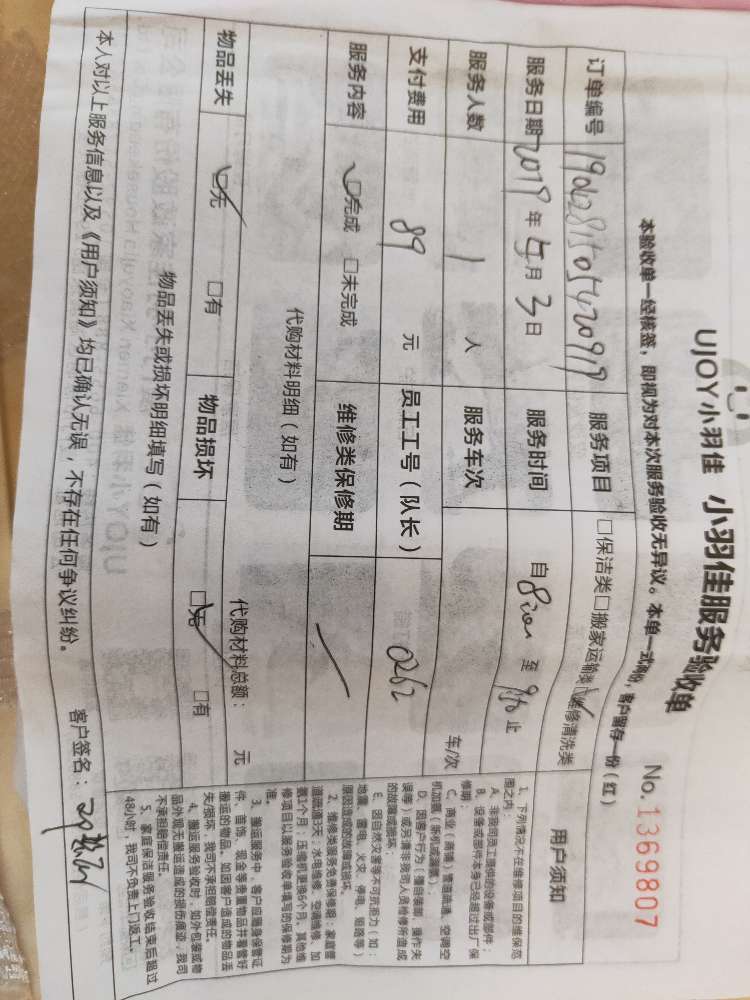 UJOY小羽佳 小羽佳服务验收单
本验收单一经核签，即视为对本次服务验收无异议。本单一式两份，客户留存一份（红）
No. 1369807
订单编号 服务项目 □保洁类□搬家运输类☑维修清洗类
服务日期 2019年5月3日 服务时间 自 至 止
服务人数 1 人 服务车次 车/次
支付费用 89 元 员工工号（队长） 0262
服务内容 ☑完成 □未完成 维修类保修期 /
代购材料明细（如有） 代购材料总额： 元
物品丢失 ☑无 □有 物品损坏 ☑无 □有
物品丢失或损坏明细填写（如有）
本人对以上服务信息以及《用户须知》均已确认无误，不存在任何争议纠纷。
客户签名：
用户须知
1、下列情况不在维修项目的维保范
围之内：
A、非我司员工提供的设备或部件；
B、设备或部件本身已经超过出厂保
修期；
C、商业（商铺）管道疏通、空调空
机加氟（新机或漏氟）；
D、因客户行为（擅自装卸、操作失
误等）或另请非我司人员维修所造成
的故障或损坏。
E、因自然灾害等不可抗原力（如：
地震、雷电、火灾、停电、短路等）
原因造成的故障或损坏。
2、维修类服务免责保修期：家庭管
道疏通3天；水电维修、空调维修、加
氟1个月；压缩机更换6个月，其他维
修项目以服务验收单填写的保修期为
准。
3、搬运服务中，客户应随身保管证
件、首饰、现金等贵重物品并看管好
搬运的物品，如因客户造成的物品丢
失/损坏，我司不承担赔偿责任。
4、搬运服务验收时，如外包装或物
品外观无搬运造成的损伤痕迹，我司
不承担赔偿责任。
5、家庭保洁服务验收结束后超过
48小时，我司不负责上门返工。